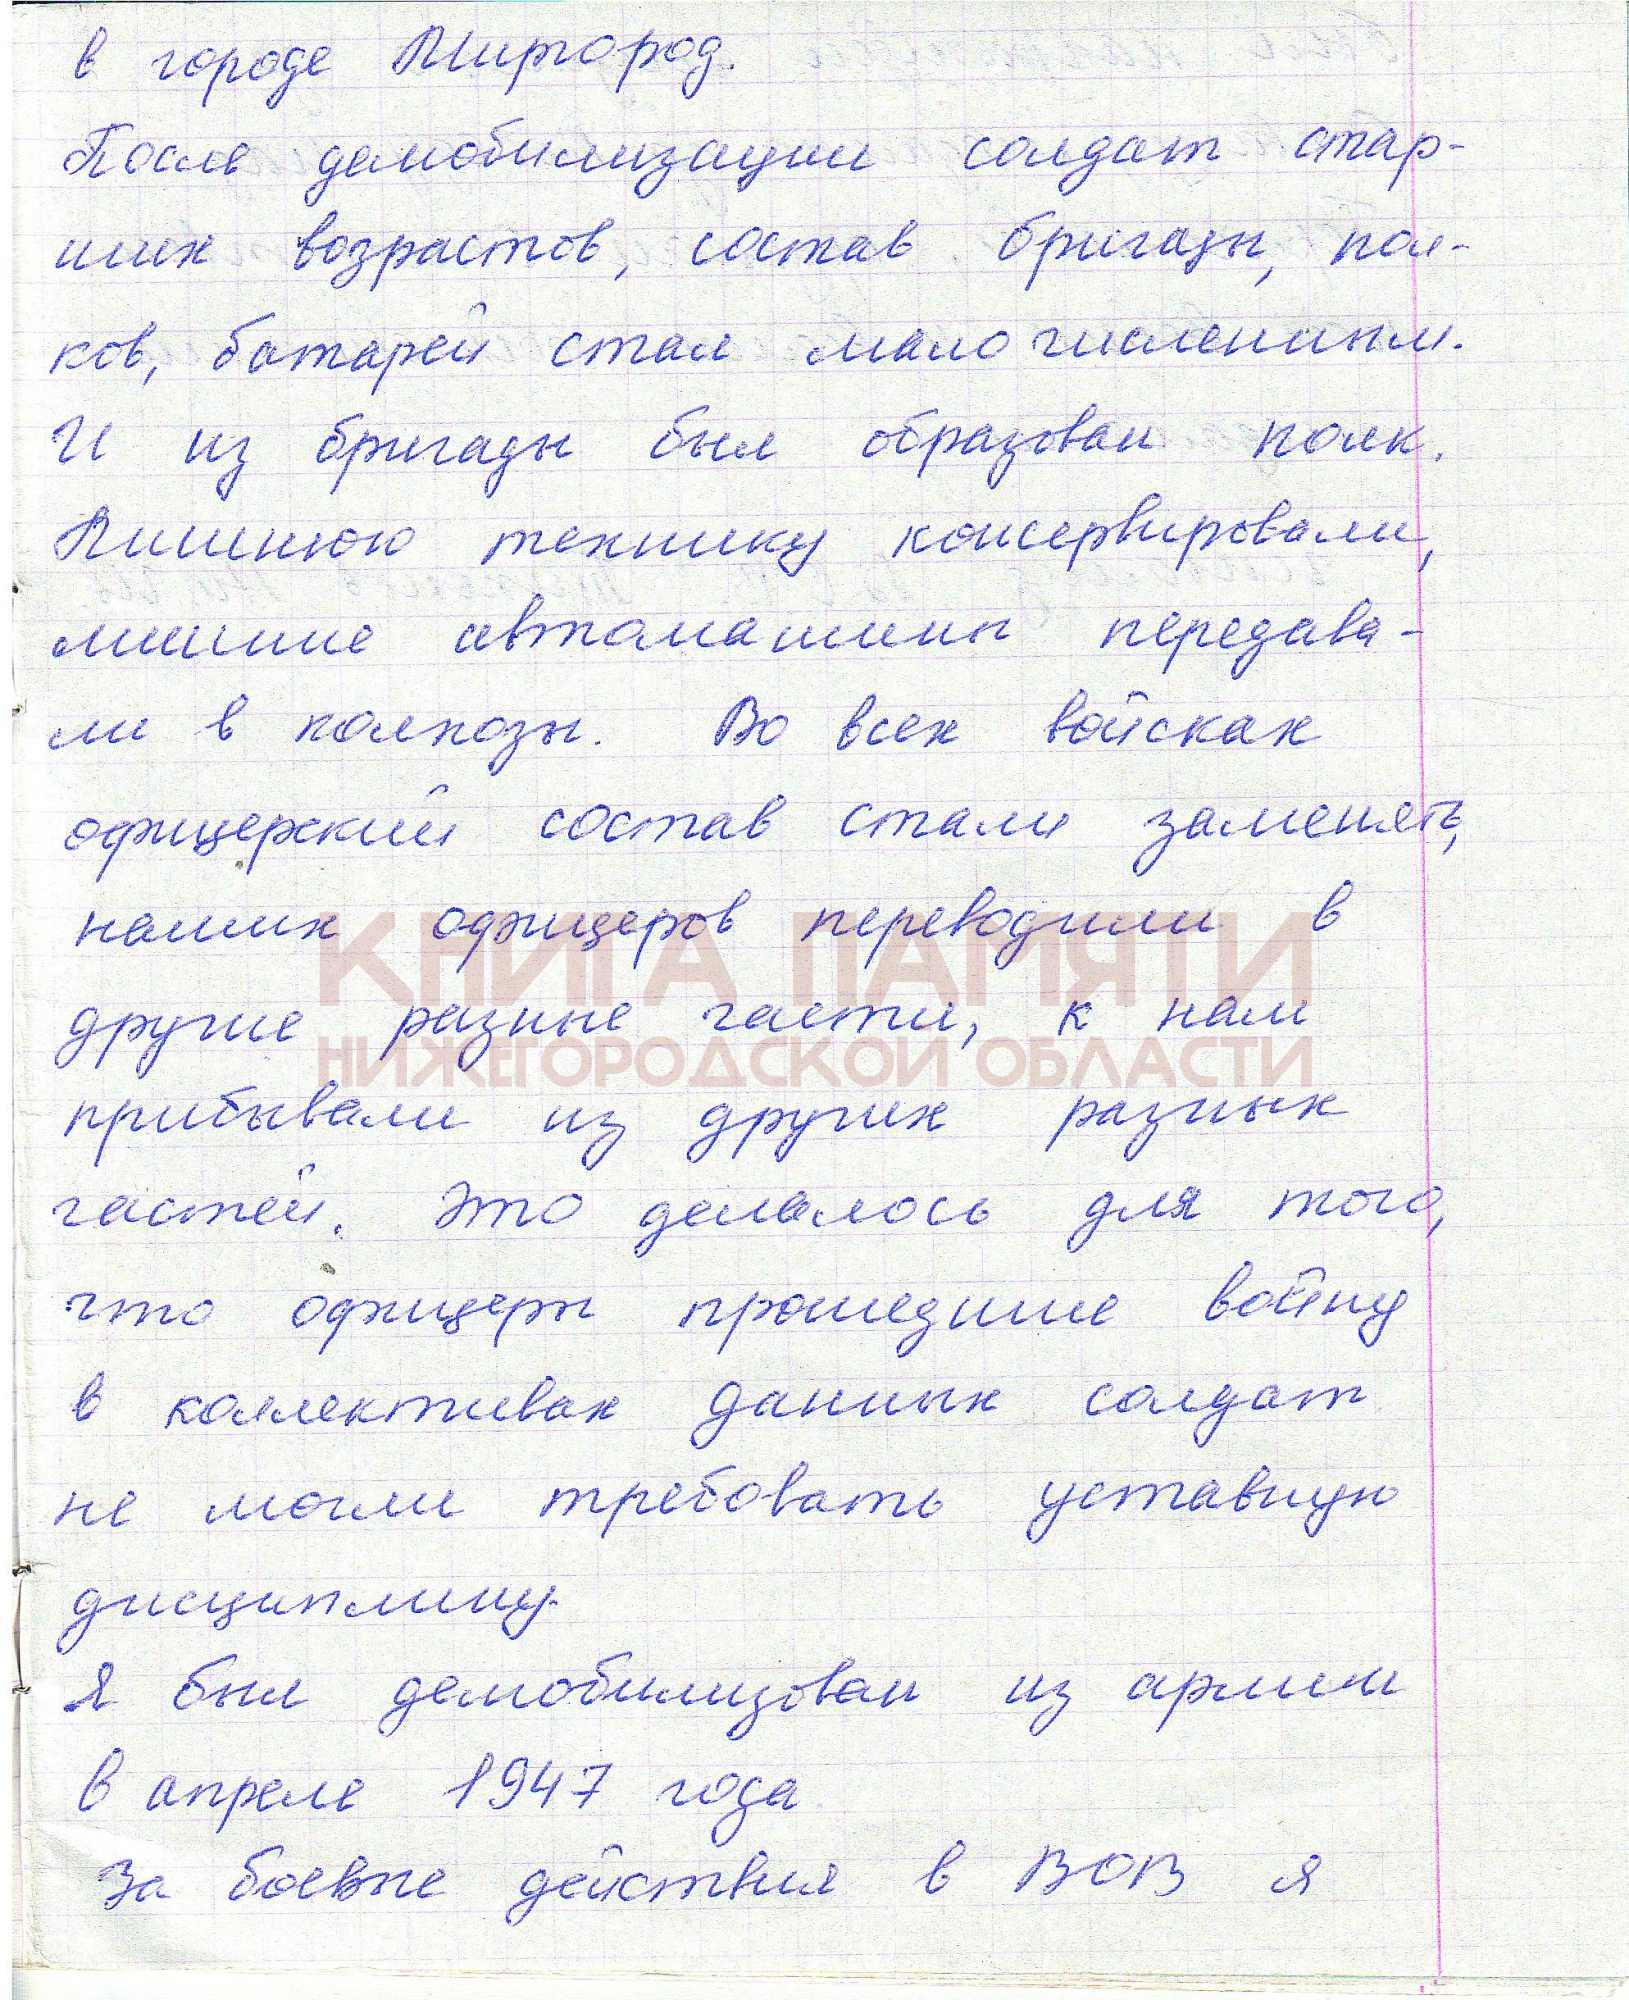 в городе Миргород.
После демобилизации солдат стар-
ших возрастов, состав бригады, пол-
ков, батарей стал малочисленным.
И из бригады был образован полк.
Лишнюю технику консервировали,
лишние автомашины передава-
ли в колхозы. Во всех войсках
офицерский состав стали заменять,
наших офицеров переводили в
КНИГА ПАМЯТИ
другие разные части, к нам
НИЖЕГОРОДСКОЙ ОБЛАСТИ
прибывали из других разных
частей. Это делалось для того,
что офицеры прошедшие войну
в коллективах данных солдат
не могли требовать уставную
дисциплину.
Я был демобилизован из армии
в апреле 1947 года
За боевые действия в ВОВ я